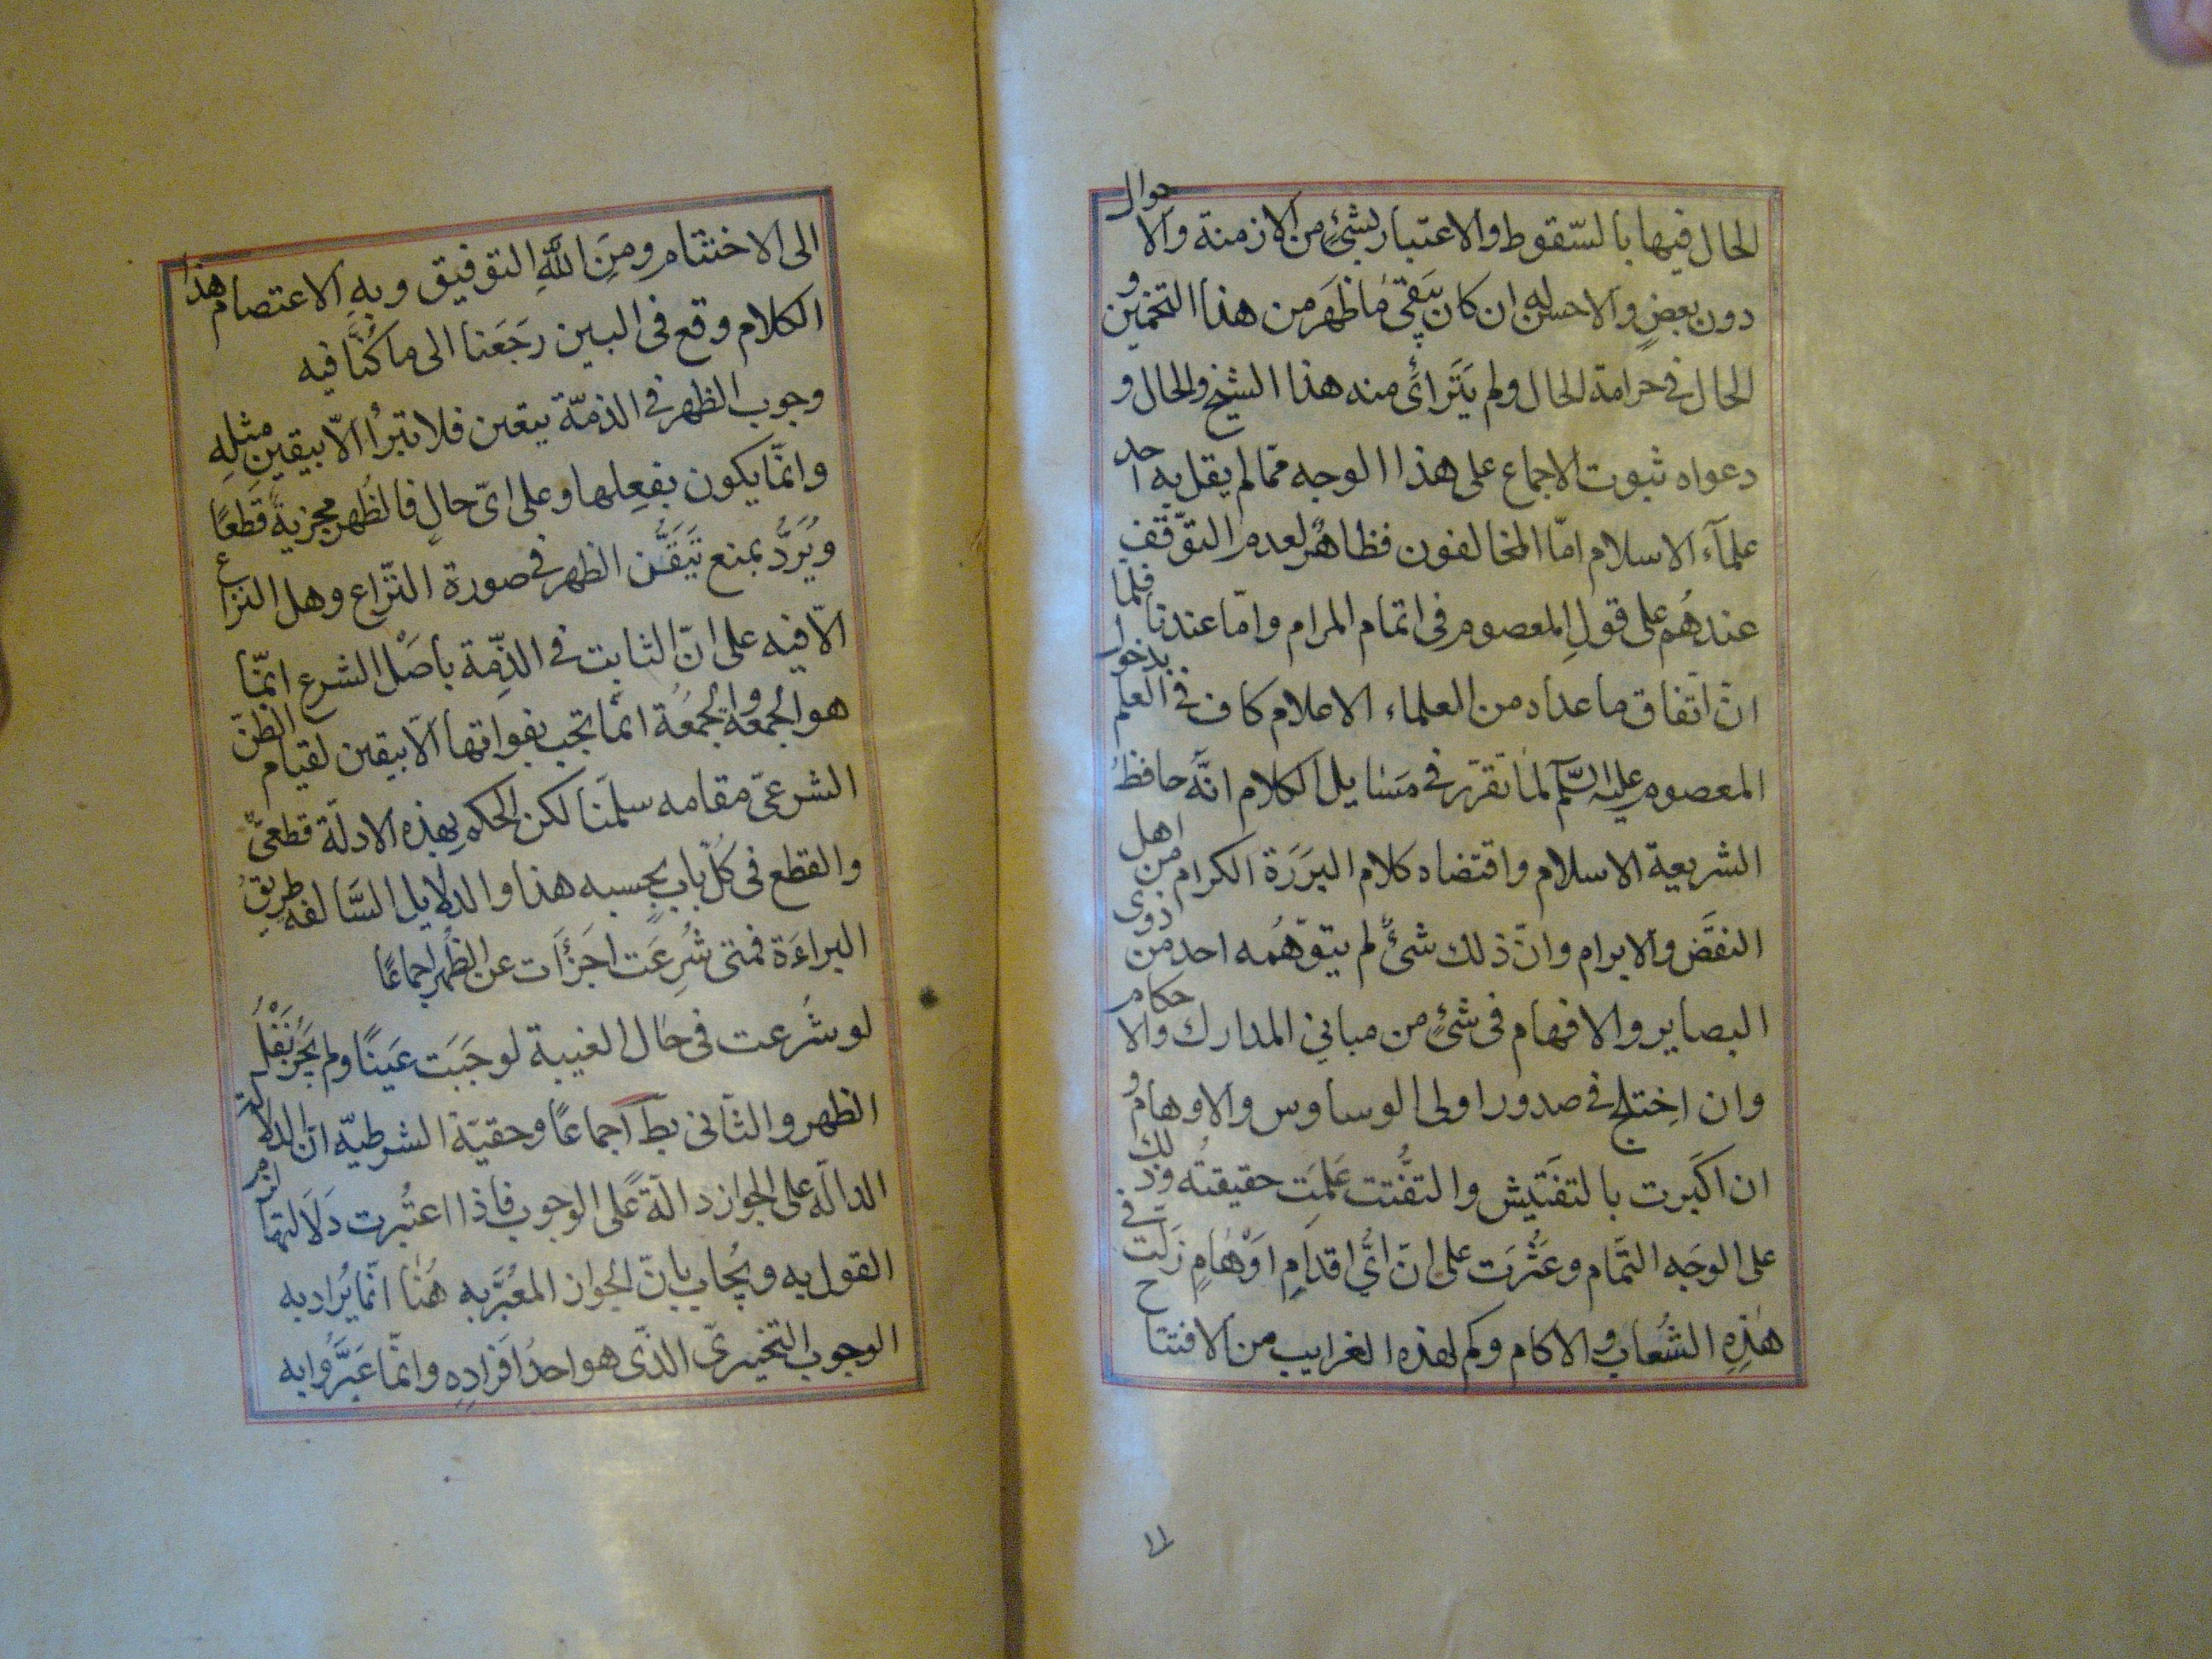 الحال فيها بالسّقوط والاعتبار لشئٍ من الازمنة والاحوال
دون بعضٍ والاحسن له ان كان يَتقي مُا ظَهَر من هذا التخمين و
الحال في حرامة الحال ولم يَتَرائَ منه هذا الشيخ والحال و
دعواه ثبوت الاجماع على هذا الوجه ممّا لم يقل به احد
علمآء الاسلام امّا المخالفون فظاهرٌ لعدم التوّقف
عندهُم على قولِ المعصوم فى اتمام المرام وامّا عندنا فلما
انّ اتّفاق ما عداه من العلماء الاعلام كاف فى العلم بدخول
المعصوم عليه السّلم لمٰا تقرّر فى مَسٰايل الكلام انَّه حافظُ
الشريعة الاسلام واقتضاه كلام البَرَرَة الكرام من اهل
النقَّض والابرام وانّ ذلك شئٌ لم يتوّهمُه احد من ذوى
البصاير والافهام فى شئٍ من مباني المدارك والاحكام
وان اختلج فى صدور اولى الوساوس والاوهام و
ان اكَبرت بالتفَتيش والتفُّتت عَلمِت حقيقتُه وذلك
على الوجَه التّمام وعَثُرت على انّ ايُّ اقدامِ اوَْهٰامٍ زلّت فى
هٰذِهِ الشُعاب والاكام وكم لهذه الغرايب من الافتتاح
١١
الى الاختتام ومنَِ اللّٰهِ التوفيق وبهِ الاعتصام هذا
الكلام وقع فى البين رَجَعَنا الى ما كُنَّا فيه
وجوب الظهر فى الذمّة بيقين فلا تبرأُ الاّ بيقينٍ مثلهِ
وانمّا يكون بفعِلها وعلى اىّ حالٍ فالظُهر مجزيةً قَطعًا
ويُرَدُّ بمنع تَيَقَّن الظهر فى صورة النّزاع وهل النزاع
الاّ فيه على انّ الثابت فى الذِّمة بأصَْل الشرع انمّا
هو الجمعة والجمعُة انمّا تجب بفواتها الاّ بيقين لقيام الظنّ
الشرعىّ مقامه سلمّنا لكن الحكم بهذه الادلّة قطعىٌّ
والقطع فى كلّ بابٍ بحسبه هذا والدلايل السَّالفه طريقُ
البراءَة فمتى شُرِعَت اجَزَأَت عن الظُهر اجماعًا
لو شُرعت فى حَال الغيبة لوجَبَت عَينًا ولم يَجُز نَفْلُ
الظهر والثّانى بط اجماعًا وحقيَة الشرطيّه انّ الدلالة
الدالّه على الجواز دالّة على الوجوب فاذا اعتُبرت دَلَالتها لزم
القول به ويُجاب بانّ الجواز المعُبَّر به هُنٰا انّما يُراد به
الوجوب التخييرىّ الذّى هو احدُ افَرادِه وانمّا عَبَّرُوا به